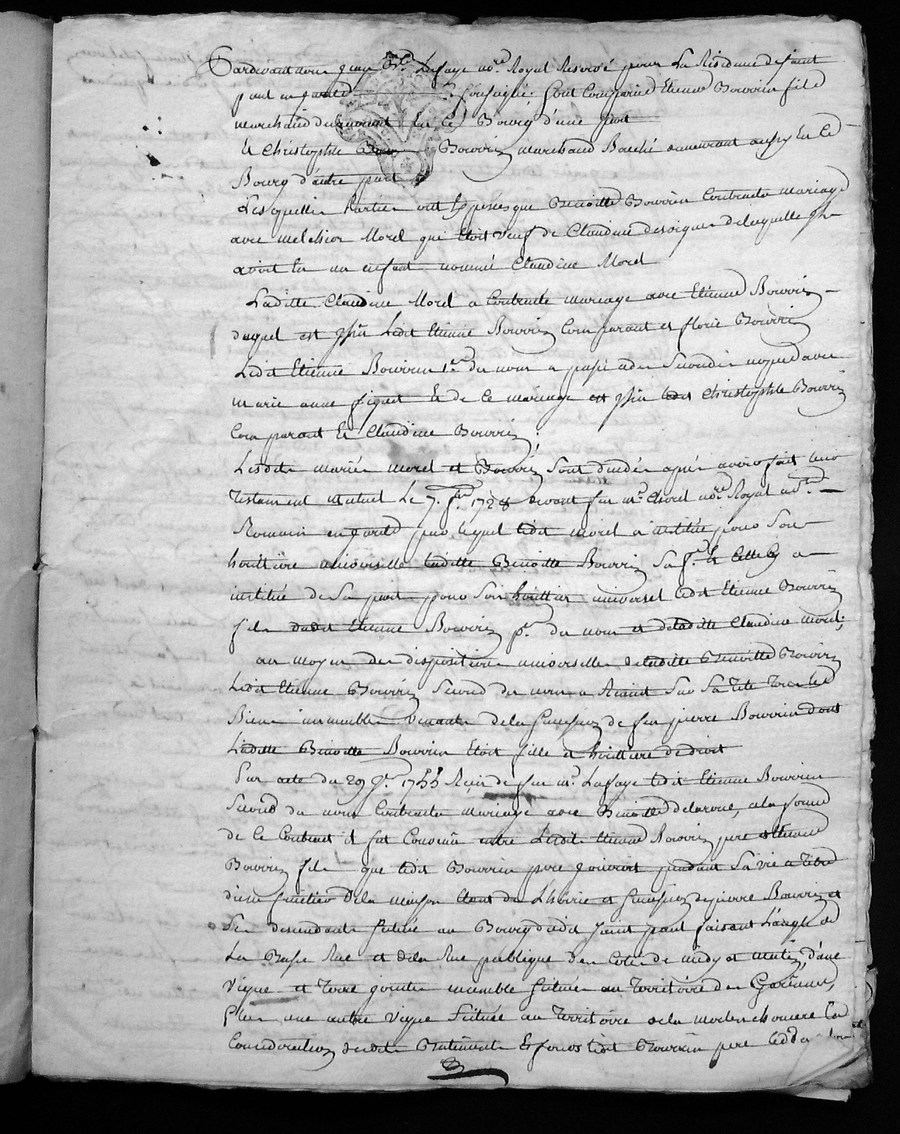 Pardevant nous jean Lafaye no.re Royal Reservé pour la Residence de saint
paul en jarest soussigné, sont Comparu Etienne Bouvrin fils
marchand demeurant en ce Bourg d'une part
Et Christophle Bouvrin marchand demeurant aussy en ce
Bourg d'autre part
Lesquelles Parties ont Exposé que Benoitte Bouvrin Contracta mariage
avec melchior Morel qui étoit veuf de Claudine de laquelle
avoit eu un enfant nommé Claudine Morel
Laditte Claudine Morel a Contracté mariage avec Etienne Bouvrin
duquel est Ledit Etienne Bouvrin Comparant et florie Bouvrin
Ledit Etienne Bouvrin 1.er du nom a passé a de Secondes avec
marie anne Et de Ce mariage est Christophle Bouvrin
Comparant et Claudine Bouvrin,
Lesdits mariés morel et Bouvrin sont décédés après avoir fait leur
Testament mutuel Le 7. 1728 devant feu m.e no.re Royal
Romain en jarest par lequel ledit morel a institué pour son
heritière universelle laditte Benoitte Bouvrin sa f.e Et Celle Cy a
institué de sa part pour son heritier universel ledit Etienne Bouvrin
fils dudit Etienne Bouvrin p.er du nom et de laditte Claudine morel;
au moyen des dispositions universelles de laditte Benoitte Bouvrin
Ledit Etienne Bouvrin Second du nom a Réuni Sur Sa Tête Tous les
Biens immeubles venants de la succession de feu pierre Bouvrin dont
Laditte Benoitte Bouvrin étoit fille et heritiere de droit
Par acte du 29 Reçu de feu m.e Lafaye ledit Etienne Bouvrin
Second du nom Contracta mariage avec Benoitte delaroue, a la forme
de ce Contract il fut Convenu entre Ledit Etienne Bouvrin pere et Etienne
Bouvrin fils que ledit Bouvrin pere jouiroit pendant Sa vie a Titre
d'usufruitier de la maison étant de L'hoirie et succession de pierre Bouvrin et
ses descendants située au Bourg dudit saint paul faisant L'angle de
La Basse Rue et de la Rue publique des cotés de midy et matin, d'une
vigne et Terre jointes ensemble située au Territoire des
Plus une autre vigne Située au Territoire de la
Consideration desdits Batiments Et fonds ledit Bouvrin pere